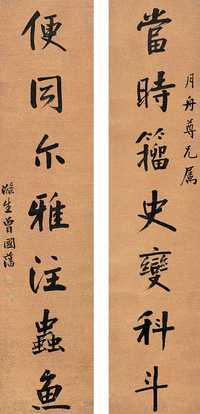 月舟尊兄属
當時籀史變科斗
便同尔雅注蟲魚
滌生曾國藩